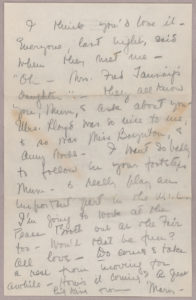 I think you'd love it -
Everyone, last night, said
when they met me -
"Oh - Mrs. Fred
daughter" - They all know
you, Mum, & ask about you
Mrs. Lloyd was so nice to me
& so was Miss Boynton, &
Amy Ross. I want so badly
to follow in your footsteps
Mum - & really play an
important part in the
I'm going to work at the
Peace Booth out at the Fair
too - Won't that be fun?
All love - Do come & take
a rest from moving for
awhile - How is coming? A great
big kiss from Mary